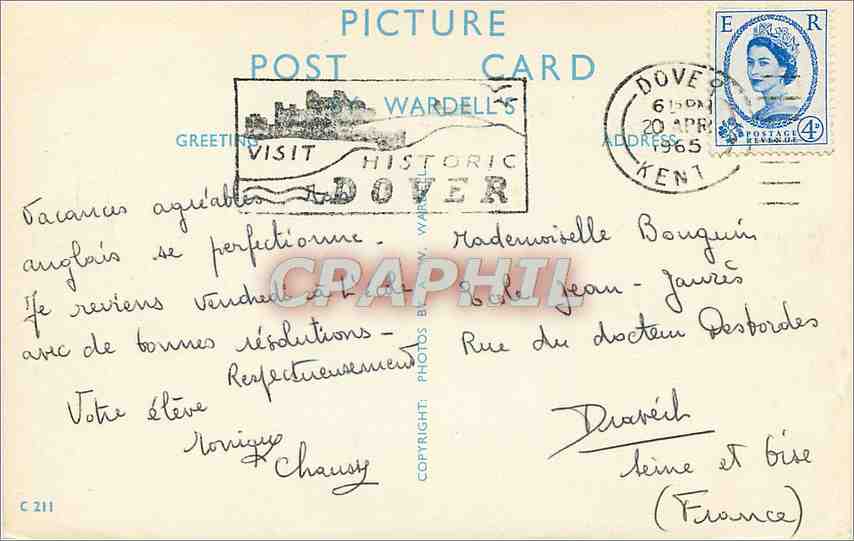 PICTURE
POST CARD
BY WARDELL'S
GREETING
ADDRESS
VISIT HISTORIC
DOVER
DOVER
6 15 PM
20 APR
1965
KENT
E R
POSTAGE
REVENUE
4D
Vacances agréables
anglais se perfectionne.
Je reviens vendredi à l'école
avec de bonnes résolutions.
Respectueusement
Votre élève
Monique
Chaussy
Mademoiselle Bouguin
Ecole Jean-Jaurès
Rue du docteur Desbordes
Draveil
Seine et Oise
(France)
COPYRIGHT: PHOTOS BY A. W. WARDELL
CPAPHIL
C 211